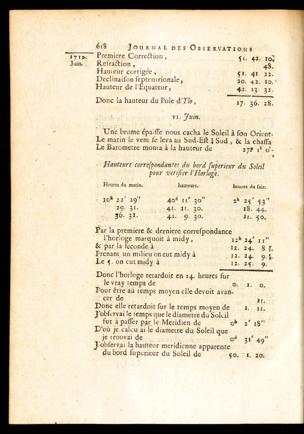 618 JOURNAL DES OBSERVATIONS
1710. Juin.
Premiere Correction, 51. 42. 10.
Refraction, 48.
Hauteur corrigée, 51. 41. 22.
Declinaison septentrionale, 20. 42. 10.
Hauteur de l'Équateur, 42. 23. 32.
Donc la hauteur du Pole d'Ylo, 17. 36. 28.
VI. Juin.
Une brume épaisse nous cacha le Soleil à son Orient.
Le matin le vent se leva au Sud-Est ¼ Sud, & la chassa
Le Barometre monta à la hauteur de 27p
Hauteurs correspondantes du bord superieur du Soleil
pour verifier l'Horloge.
Heures du matin. hauteurs. heures du soir.
10h 22' 29" 40d 11' 30" 2h 25' 53"
29. 31. 41. 11. 30. 18. 44.
36. 31. 42. 9. 30. 11. 50.
Par la premiere & derniere correspondance
l'horloge marquoit à midy, 12h 24' 11"
& par la seconde à 12. 24. 8
Prenant un milieu on eut midy à 12. 24. 9
Le 5. on eut midy à 12. 25. 9.
Donc l'horloge retardoit en 24. heures sur
le vray temps de 0. 1. 0.
Pour être au temps moyen elle devoit avan-
cer de 11.
Donc elle retardoit sur le temps moyen de 1. 11.
J'observai le temps que le diametre du Soleil
fut à passer par le Meridien de 0h 2' 18"
D'où je calcu ai le diametre du Soleil que
je trouvai de 0d 31' 49"
J'observai la hauteur meridienne apparente
du bord superieur du Soleil de 50. 1. 20.